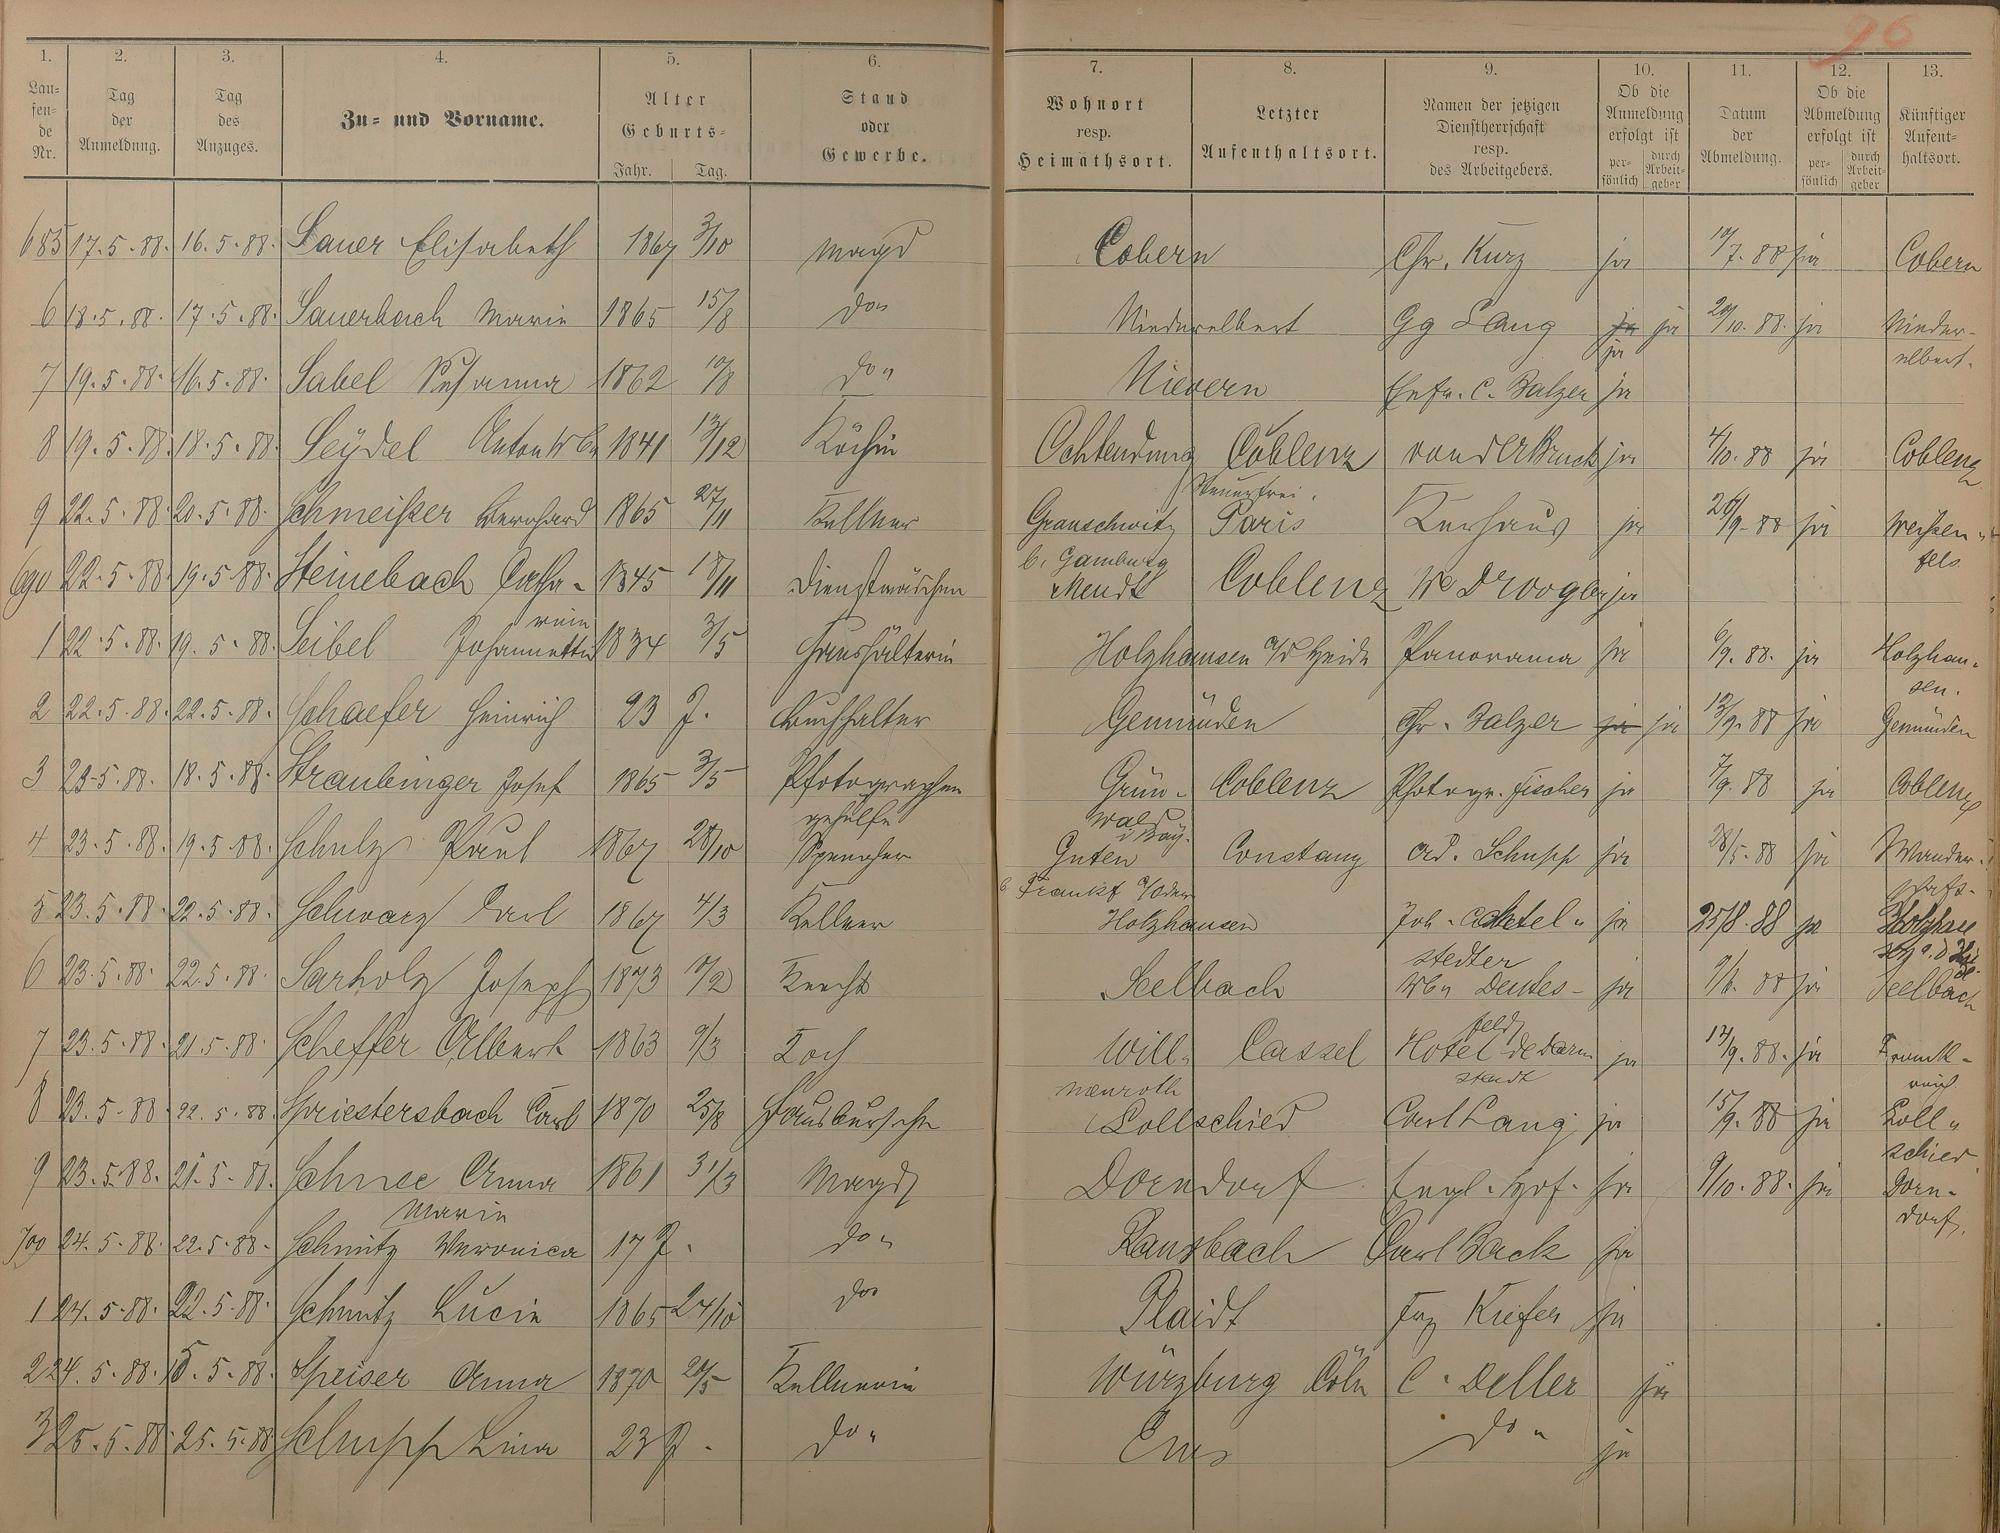 96
1. 2. 3. 4. 5. 6. 7. 8. 9. 10. 11. 12. 13.
Lau-
fen-
de
Nr.
Tag
der
Anmeldung.
Tag
des
Anzuges.
Zu- und Vorname.
Alter
Geburts-
Jahr. Tag.
Stand
oder
Gewerbe.
Wohnort
resp.
Heimathsort.
Letzter
Aufenthaltsort.
Namen der jetzigen
Dienstherrschaft
resp.
des Arbeitgebers.
Ob die
Anmeldung
erfolgt ist
per-
sönlich
durch
Arbeit-
geber
Datum
der
Abmeldung.
Ob die
Abmeldung
erfolgt ist
per-
sönlich
durch
Arbeit-
geber
Künftiger
Aufent-
haltsort.
685 17.5.88. 16.5.88. Sauer Elisabeth 1867 3/10 Magd Cobern Chr. Kurz ja 19/7.88 ja Cobern
6 18.5.88. 17.5.88. Sauerbach Marie 1865 15/8 do" Niederelbert Gg Lang ja ja 20/10.88. ja Nieder-
elbert.
ja
7 19.5.88. 16.5.88. Sabel Susanna 1862 10/8 do" Nievern C. Balzer ja
8 19.5.88. 18.5.88. Seydel Anton 1841 13/12 Köchin Ochtendung Coblenz von der Bruck ja 4/10.88 ja Coblenz
Steuerfrei.
9 22.5.88. 20.5.88. Schmeißer Bernhard 1865 27/11 Kellner Granschwitz Paris Kurhaus ja 26/9.88 ja Weißen-
fels
690 22.5.88. 19.5.88. Steinebach Catha- 1845 18/11 Dienstmädchen Mendt Coblenz We Droogler ja
rina
1 22.5.88. 19.5.88. Seibel Johannette 1834 3/5 Haushälterin Holzhausen a/d Heide Panorama ja 6/9.88. ja Holzhau-
sen.
2 22.5.88 22.5.88. Schaefer Heinrich 23 J. Buchhalter Gemünden Chr. Balzer ja ja 13/9.88 ja Gemünden
3 23.5.88. 18.5.88. Straubinger Josef 1865 3/5 Photographen Grün- Coblenz Photogr. Fischer ja 7/9.88 ja Coblenz
gehülfe
wald
i Bay.
4 23.5.88. 19.5.88. Schulz Paul 1867 28/10 Spengler Guten Constanz Ad. Schupp ja 28/5.88 ja Wander-
schaft.
b. Frankf a/Oder
5 23.5.88. 22.5.88. Schwarz Carl 1867 4/3 Kellner Holzhausen Joh. Cachtel" ja 25/8.88 ja
stedter
6 23.5.88. 22.5.88. Sarholz Joseph 1873 10/2 Knecht Seelbach Wb" Deutes- ja ja Seelbach
feld
7 23.5.88. 21.5.88. Scheffer Albert 1863 9/3 Koch Will- Cassel Hotel de Darm ja 17/9.88. ja Frank-
reich
stadt
menroth
8 23.5.88 22.5.88. Spriestersbach Carl 1870 25/8 Hausbursche Lollschied Carl Lang ja 15/9.88 ja Loll"
schied
9 23.5.88. 21.5.88. Schnee Anna 1861 31/3 Magd Dorndorf Engl. Hof. ja 9/10.88. ja Dorn-
dorf.
Marie
700 24.5.88. 22.5.88. Schmitz Veronica 17 J. do" Ransbach Carl Back ja
1 24.5.88. 22.5.88. Schmitz Lucie 1865 24/10 do" Plaidt Frz Kiefer ja
2 24.5.88. 15.5.88. Speiser Anna 1870 20/5 Kellnerin Würzburg Cöln C. Deller ja
3 25.5.88. 25.5.88 Schupp Lina 23 J. do" Ems do" ja